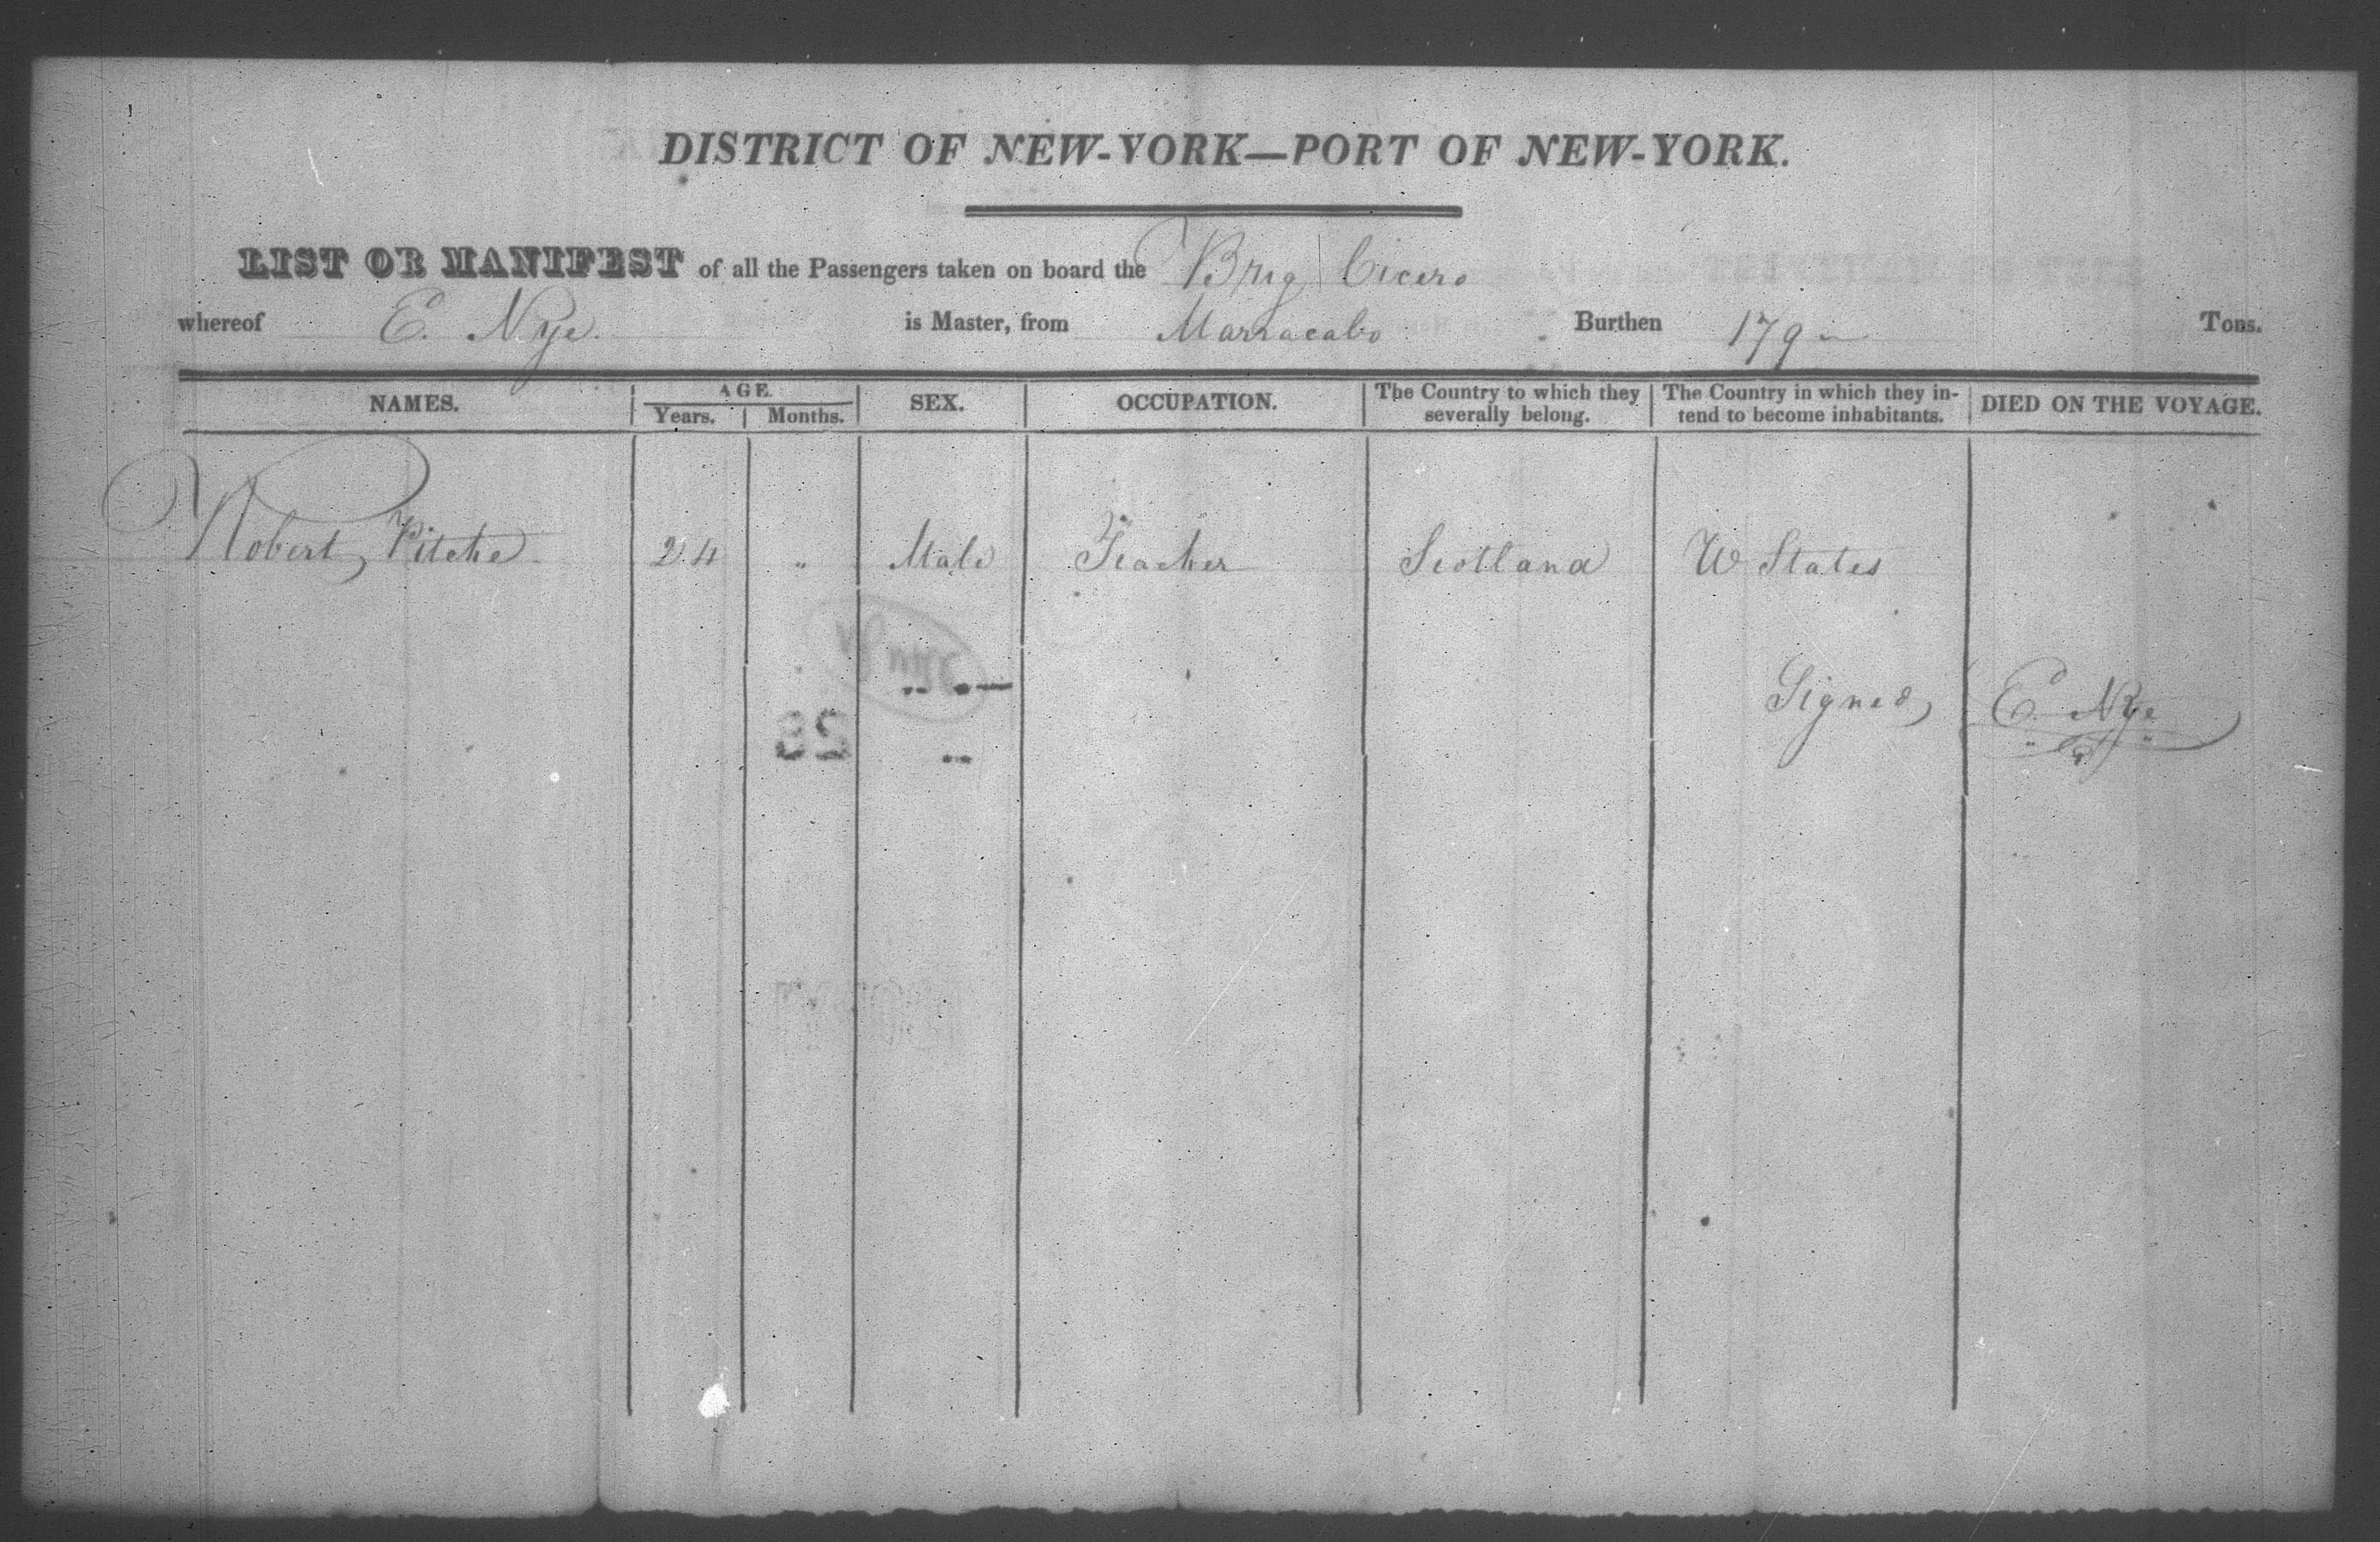 DISTRICT OF NEW-YORK—PORT OF NEW-YORK.
LIST OR MANIFEST of all the Passengers taken on board the Brig Cicero
whereof E. Nye. is Master, from Marracabo Burthen 179 Tons.
NAMES. AGE. SEX. OCCUPATION. The Country to which they severally belong. The Country in which they in- tend to become inhabitants. DIED ON THE VOYAGE.
Years. Months.
Robert Pitche 24 " Male Teacher Scotland U States
Signed, E. Nye
28